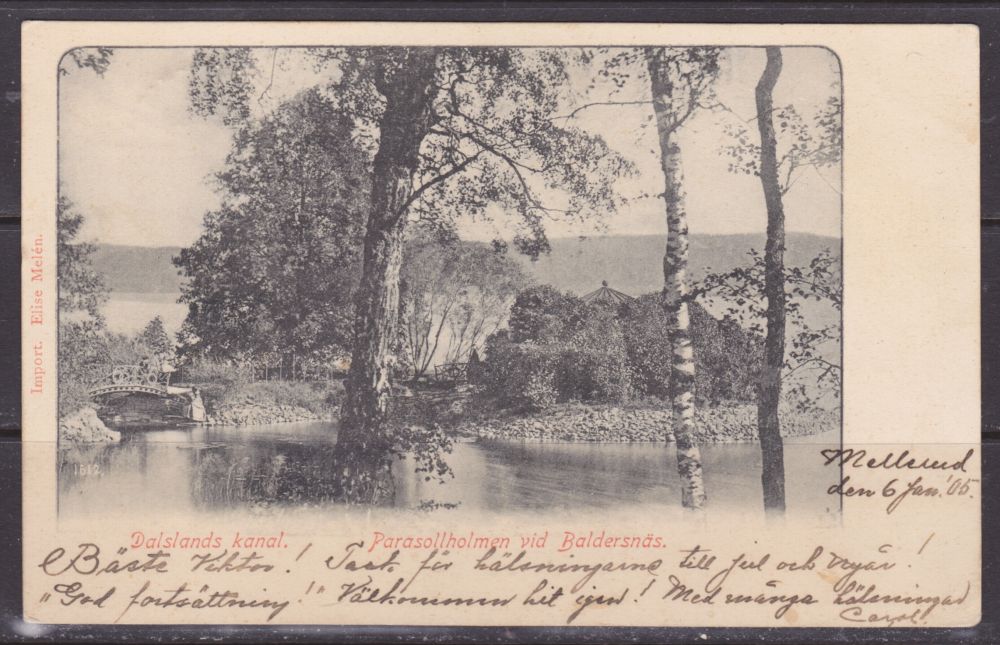 Import. Elise Melén.
1512
Mellerud
den 6 Jan. '05.
Dalslands kanal. Parasollholmen vid Baldersnäs.
Bäste Viktor! Tack för hälsningarne till jul och nyår!
"God fortsättning!" Välkommen hit igen! Med många hälsningar
Carol.